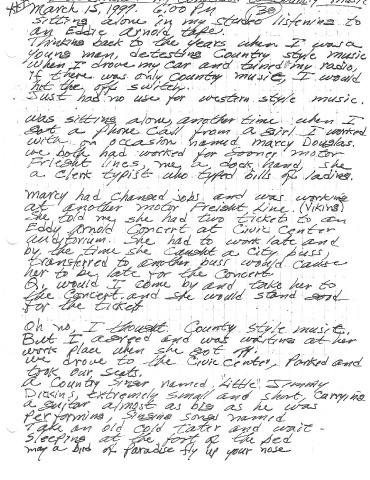 March 15, 1997. 6:00 P.M
sitting alone in my studio listening to
an Eddie Arnold tape.
Thinking back to the years when I was a
young man, detesting Country style music
when I drove my car and turned my radio,
if there was only Country music, I would
hit the off switch.
Just had no use for western style music.
was sitting alone, another time when I
got a phone call from a girl I worked
with on occasion named Marcy Douglas.
we both had worked for Sooner Motor
Freight Lines, me a dock hand, she
a clerk typist who typed bills of ladings.
Marcy had changed jobs and was working
at another Motor Freight Line. (Viking)
She told me she had two tickets to an
Eddy Arnold Concert at Civic Center
auditorium. She had to work late and
by the time she caught a city buss,
transferred to another buss would cause
her to be late for the concert
would I come by and take her to
the Concert and she would stand good
for the ticket.
Oh no, I thought. Country style music.
But I, agreed and was waiting at her
work place when she got off.
we drove to the Civic Center, Parked and
took our seats.
a Country singer named, Little Jimmy
Dickins, extremely small and short, carrying
a guitar almost as big as he was
Performing, singing songs named
Take an old cold tater and wait.
Sleeping at the foot of the bed
may a bird of Paradise fly up your nose